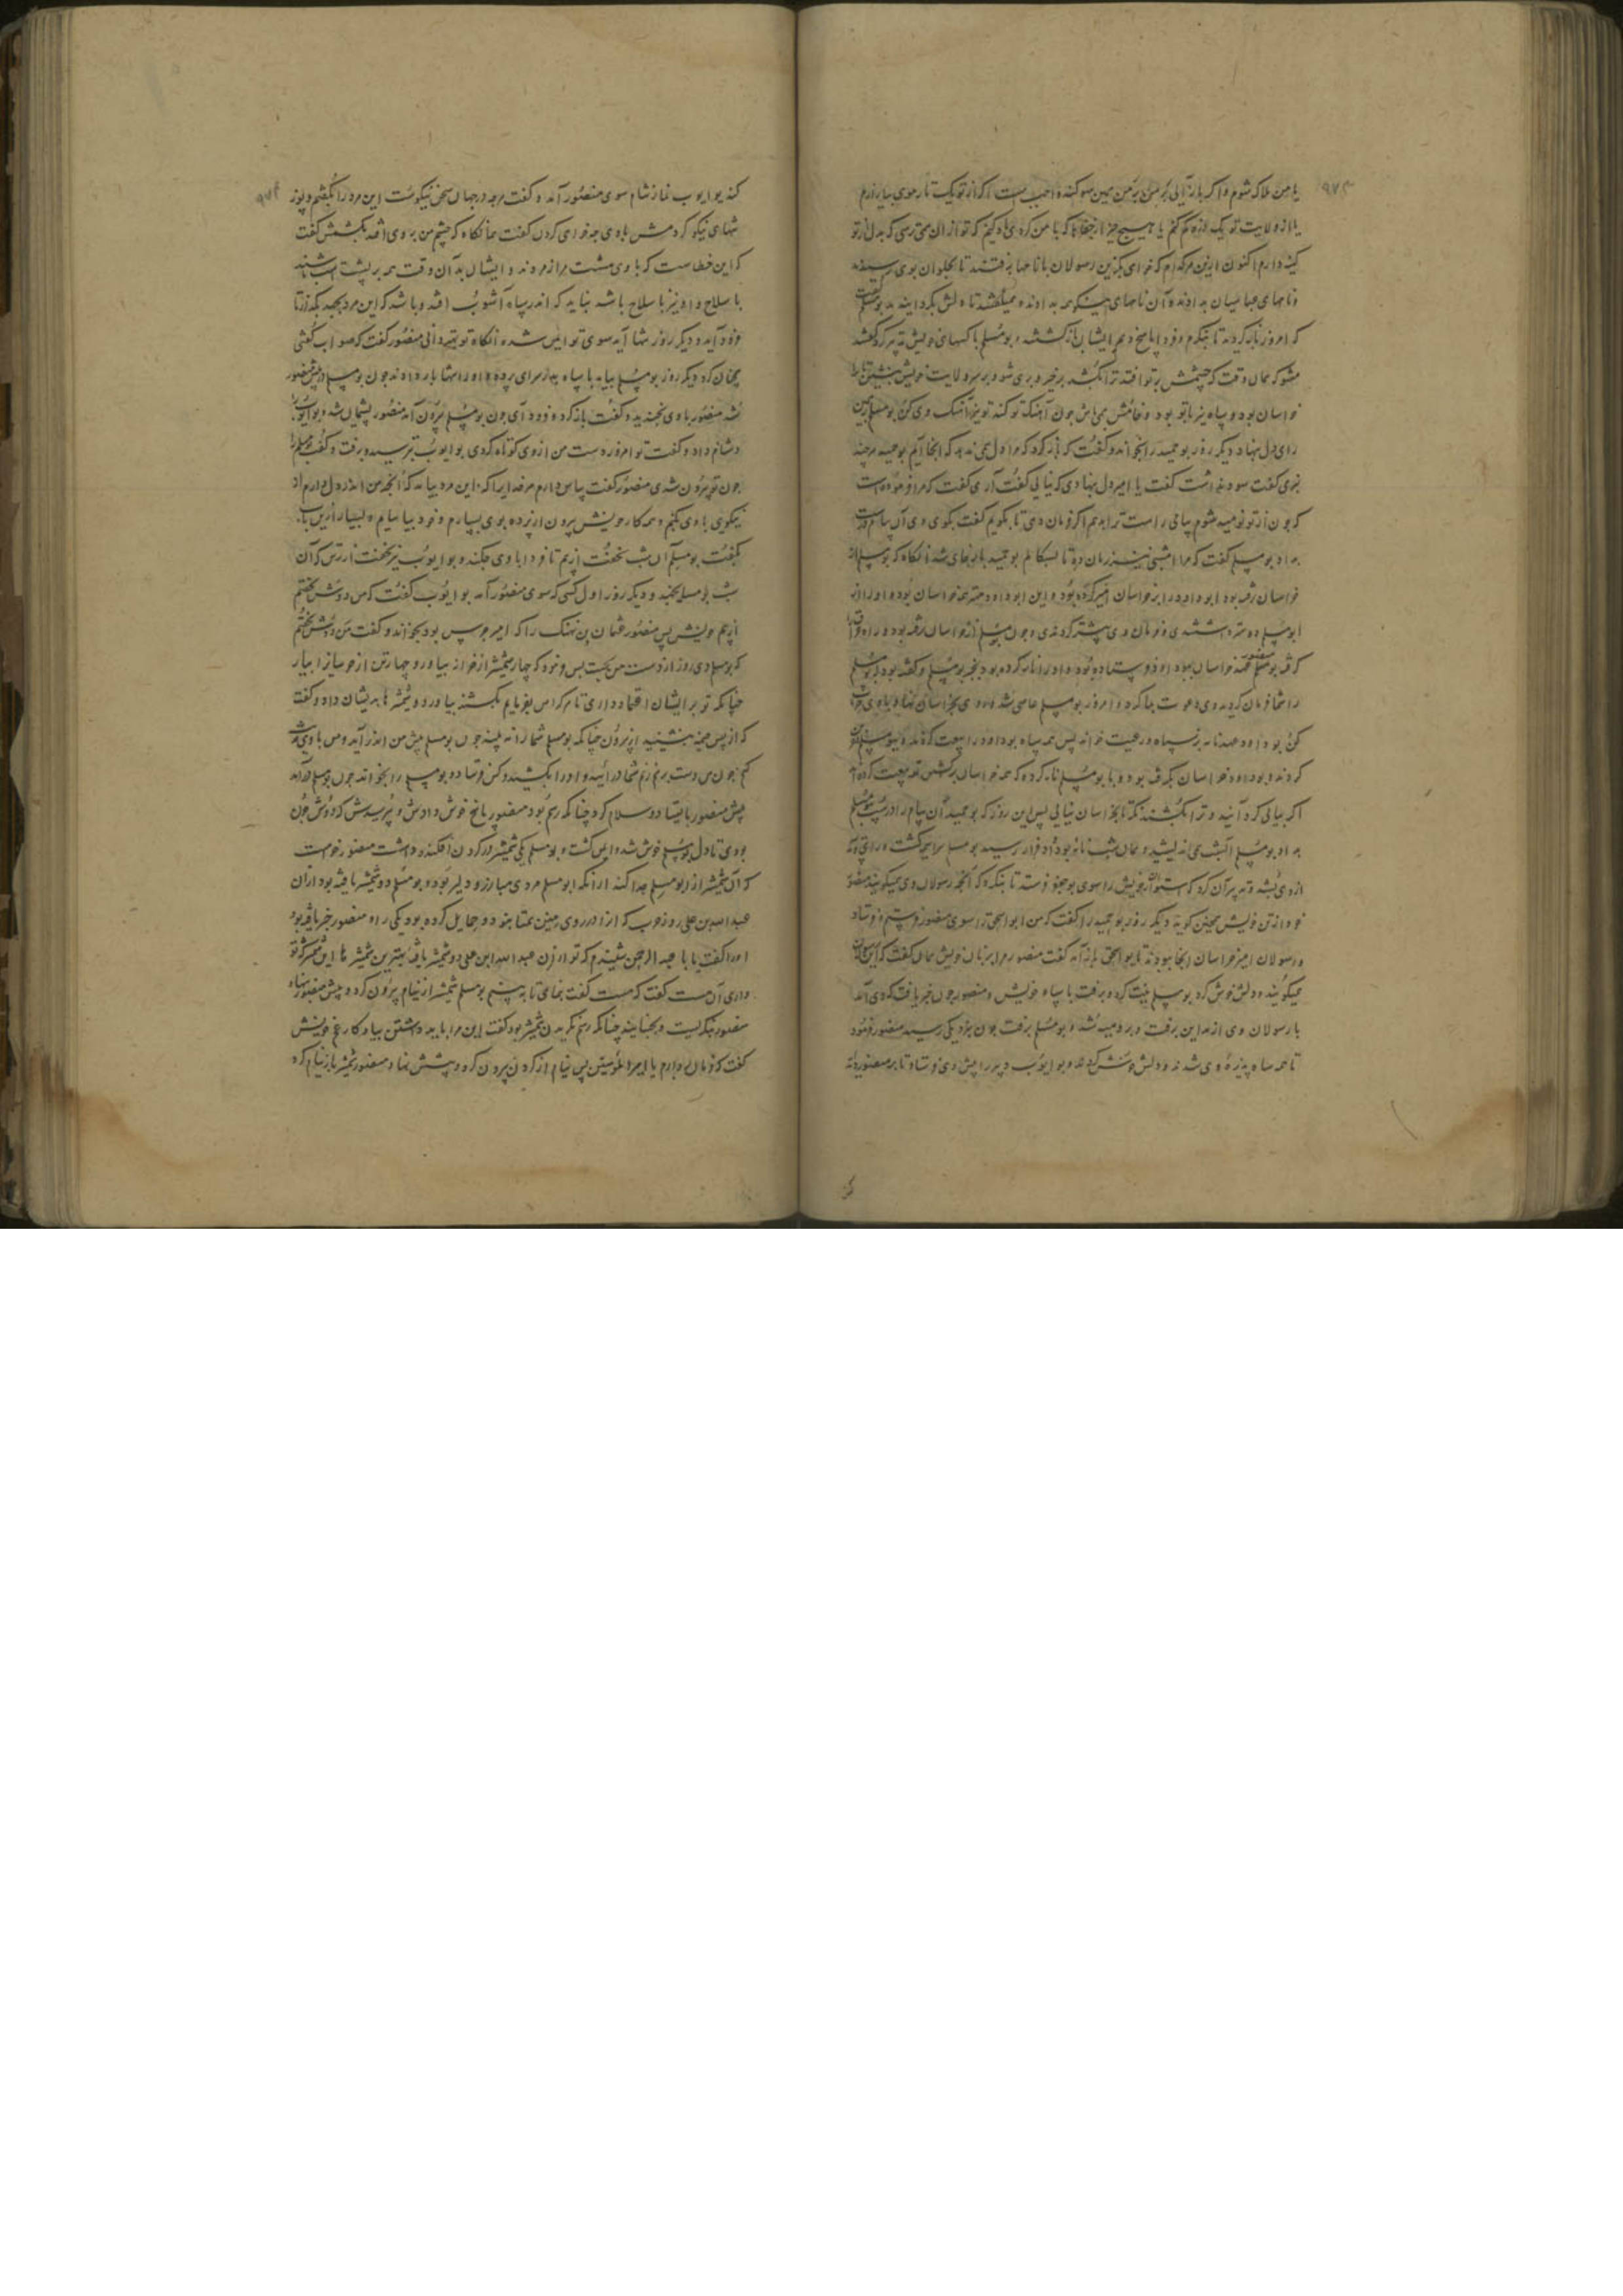 یا من هلاک شوم و اگر باز آیی
یا از ولایت تو یک کم کنم یا هیچ چیز از که با من کردی که تو از آن می ترسی که بدل از تو
کینه دارم اکنون ازین هر کدام که خواهی بگزین رسولان با نامها برفتند تا بحلوان بوی رسیدند
و نامهای عباسیان بدادند و آن نامهای بدادند و میگفتند تا دلش بگردانیدند بومسلم گفت
که امروز باز گردید تا بنگرم و فردا پاسخ دهم ایشان باز گشتند و بومسلم با کسهای خویش تدبیر کرد گفتند
مشو که همان وقت که چشمش بر تو افتد ترا بکشد برخیز و بری شو و بر سر ولایت خویش بنشین تا
خراسان بود و سپاه نیز با تو بود و خامش می باش چون آهنگ تو کند تو نیز آهنگ وی کن بومسلم برین
رای دل بنهاد دیگر روز بوحمید را بخواند و گفت که باز گرد که مرا دل نمی دهد که آنجا آیم بوحمید هر چند
نرمی گفت سود نداشت گفت یا امیر دل بنهادی که نیائی گفت آری گفت که مرا فرموده است
که چون از تو نومید شوم پیامی راست ترا بدهم اگر فرمان دهی تا بگویم گفت بگوی وی آن پیام
بداد بومسلم گفت که مرا امشبی زمان ده تا بسگالم بوحمید باز جای شد آنگاه که بومسلم از
خراسان رفته بود ابو داود را بر خراسان امیر کرده بود و این ابو داود مهتر همه خراسان بوده و او را از
ابومسلم دوستر داشتندی و فرمان وی بیشتر کردندی و چون بومسلم از خراسان رفته بود و راه
منصور
که بومسلم همه خراسان او فرستاده بود و او را نامه کرده بود
را شما فرمان کردید و وی دعوت ما کرد و امروز بومسلم عاصی شد و وی بخراسان
کن بو داود عهدنامه بر سپاه و رعیت خواند پس همه سپاه بو داود را بیعت کردند
کردند و بو داود خراسان بگرفته بود و با بومسلم نامه کرده که همه خراسان بر کشتن تو بیعت کرده
اگر بیائی گرد آیند و ترا بکشند نگر تا بخراسان نیایی پس این روز که بوحمید آن پیام داد
بداد بومسلم آن شب می اندیشید و همان شب نامه بو داود فراز رسید بومسلم سراسیمه گشت
ازوی بشد و تدبیر آن کرد که استوار خویش را سوی بوجعفر فرستد تا بنگرد که آنچه رسولان وی میگویند منصور
خود از تن خویش همچنین گوید دیگر روز بوحمید را گفت که من ابو اسحق را سوی منصور فرستم و فرستاد
و رسولان امیر خراسان آنجا ببودند تا بو اسحق باز آمد گفت منصور مرا بزبان خویش همان گفت که این رسولان
میگویند و دلش خوش کرد بومسلم نیت کرد و برفت با سپاه خویش و منصور چون خبر یافت که وی آمد
با رسولان وی از مداین برفت و برومیه شد و بومسلم برفت چون بنزدیکی رسید منصور فرمود
تا همه سپاه پذیره وی شدند و دلش خوش کردند و بو ایوب دبیر را پیش وی فرستاد تا بر منصور
کند بو ایوب نماز شام سوی منصور آمد و گفت در جهان سخن نیکوست این مرد را بکشیم و پوز
شهای نیکو کردمش با وی چه خواهی کردن گفت همانگاه که چشم من بر وی افتد بکشمش گفت
که این خطاست که با وی هشت هزار مردند و ایشان بدان وقت همه بر پشت اسب باشند
با سلاح و او نیز با سلاح باشد نباید که اندر سپاه آشوب افتد و باشد که این مرد بجهد بگذار تا
فرود آید و دیگر روز تنها آید سوی تو ایمن شده آنگاه تو بهتر دانی منصور گفت که صواب گفتی
همچنان کرد دیگر روز بومسلم بیامد با سپاه بدر سرای پرده و او را تنها بار دادند چون بومسلم در پیش منصور
شد منصور با وی بخندید و گفت باز گرد و فرود آی چون بومسلم بیرون آمد منصور پشیمان شد و بو ایوب را
دشنام داد و گفت تو امروز دست من از وی کوتاه کردی بو ایوب بترسید و برفت و گفت بومسلم را
چون تو بیرون شدی منصور گفت سپاس دارم مر خدایرا که این مرد بیامد که آنچه من اندر دل دارم از
نیکوی با وی بکنم و همه کار خویش بیرون از پرده بوی بسپارم و خود بیاسایم و بسیار آفرین
بگفت بومسلم آن شب نخفت از بیم تا فردا با وی چکند و بو ایوب نیز نخفت از ترس که آن
شب بومسلم بجهد و دیگر روز اول کسی که سوی منصور آمد بو ایوب گفت که من دوش نخفتم
از بیم خویش پس منصور عثمان بن نهیک را که امیر حرس بود بخواند و گفت من دوش نخفتم
که بومسلم دی روز از دست من بجست پس فرمود که چهار شمشیر از خزانه بیاور و چهار تن از حرسیان را بیار
چنانکه تو بر ایشان اعتماد داری تا هر که را من بفرمایم بکشند بیاورد و شمشیرها بدیشان داد و گفت
که از پس خیمه بنشینید از بیرون چنانکه بومسلم شما را نه بیند چون بومسلم پیش من اندر آید و من با وی
کنم چون من دست بر هم زنم شما در آئید و او را بکشید و کس فرستاد و بومسلم را بخواند چون بومسلم در آمد
پیش منصور بایستاد و سلام کرد چنانکه رسم بود منصور پاسخ خوش دادش و پرسیدش که دوش چون
بودی تا دل بومسلم خوش شد و ایمن گشت و بومسلم یکی شمشیر در گردن افکنده داشت منصور خواست
که آن شمشیر از ابومسلم جدا کند ازانکه ابومسلم مردی مبارز و دلیر بود و بومسلم دو شمشیر یافته بود از آن
عبدالله بن علی روز حرب که از او در روی زمین همتا نبود و حمایل کرده بود یکی را و منصور خبر یافته بود
او را گفت یا با عبدالرحمن شنیدم که تو از آن عبدالله ابن علی دو شمشیر یافته بهترین شمشیرها این شمشیر که تو
داری آن هست گفت که هست گفت بنمای تا به بینم بومسلم شمشیر از نیام بیرون کرد و پیش منصور بنهاد
منصور بنگریست و بجنبانید چنانکه رسم نگریدن شمشیر بود گفت این مرا باید داشتن بیاد کار عم خویش
گفت که فرمان بردارم یا امیر المؤمنین پس نیام از گردن بیرون کرد و پیشش بنهاد و منصور شمشیر باز نیام کرد